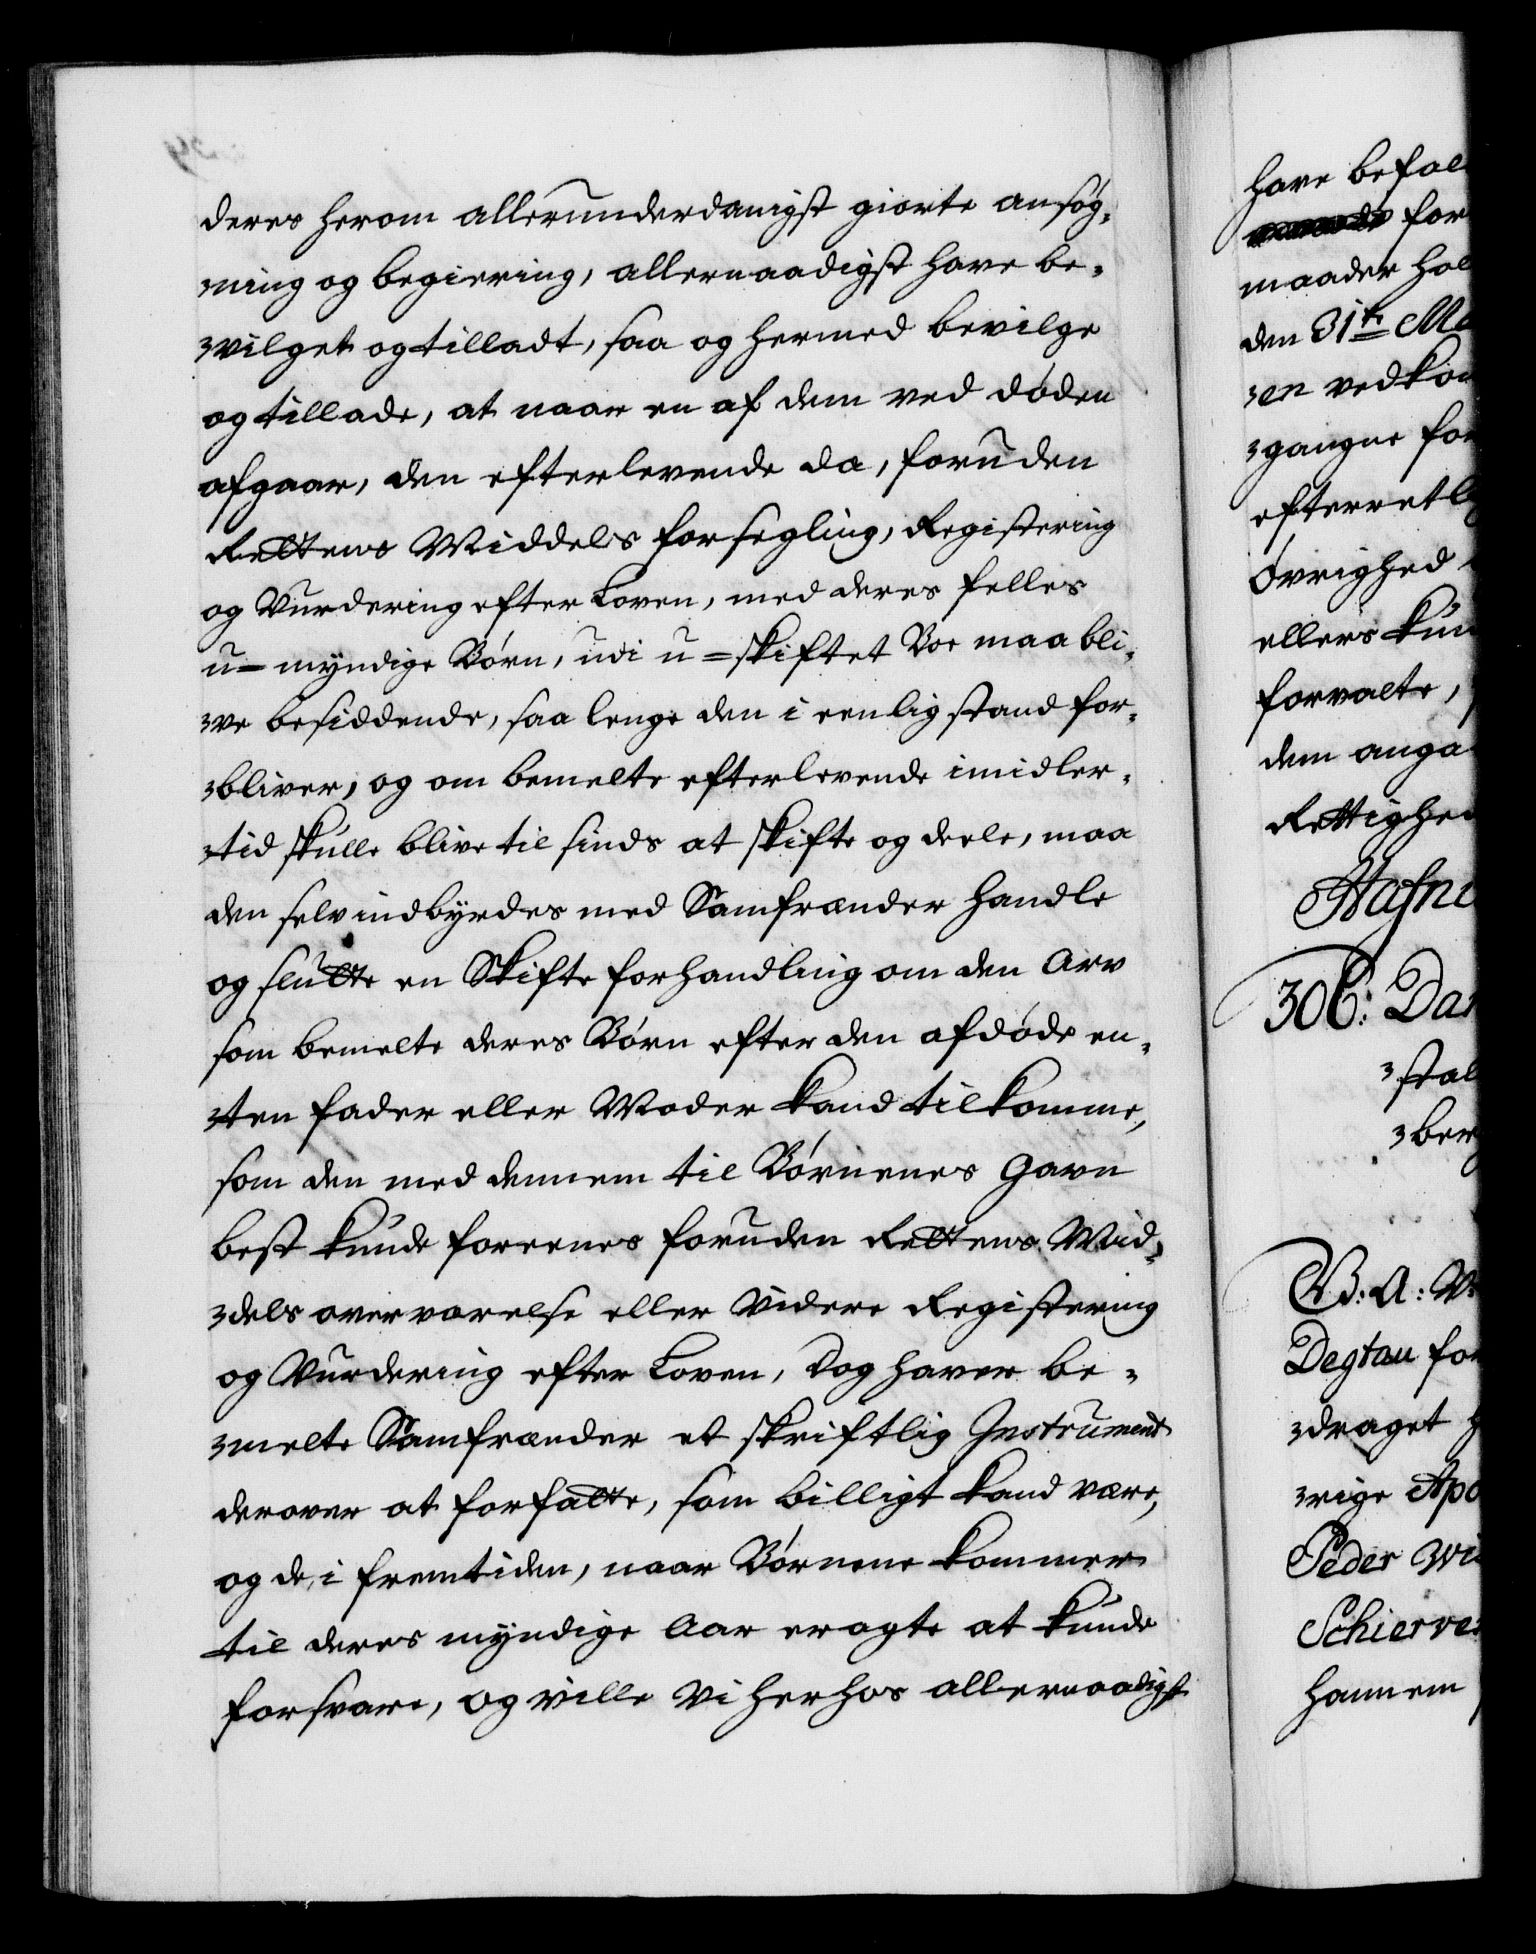 deres herom allerunderdanigst giorte ansøg-
-ning og begiering, allernaadigst have be-
-vilget og tilladt, saa og hermed bevilge
og tillade, at naar en af dem ved døden
afgaar, den efterlevende da, foruden
Rettens Middels forsegling, Registering
og Vurdering efter Loven, med deres felles
u-myndige Børn, udi u-skiftet Boe maa bli-
-ve besiddende, saa lenge den i eenlig stand for-
-bliver, og om bemelte efterlevende imidler-
-tid skulle blive til sinds at skifte og deele, maa
den selv indbyrdes med Samfrænder handle
og slutte en Skifte forhandling om den Arv
som bemelte deres Børn efter den afdøde en-
-ten fader eller Moder kand tilkomme,
som den med dennem til Børnenes Gavn
best kunde foreenes foruden Rettens Mid-
-dels overværelse eller Videre Registering
og Vurdering efter Loven, dog haver be-
-melte Samfrænder et skriftlig Instrument
derover at forfatte, som billigt kand være,
og de, i fremtiden, naar Børnene kommer
til deres myndige Aar eragte at kunde
forsvare, og ville Vi herhos allernaadigst
have befal
for
maader hol
den 31te Ma
-en vedkom
-gangne for
efterretl
Øvrighed
ellers kun
forvalte,
dem anga
Rettighed
Hafni
306: Dan
-stal
-berg
V: A: V
Degtau for
-draget h
-rige Apo
Peder Wi
Schierve
hannem